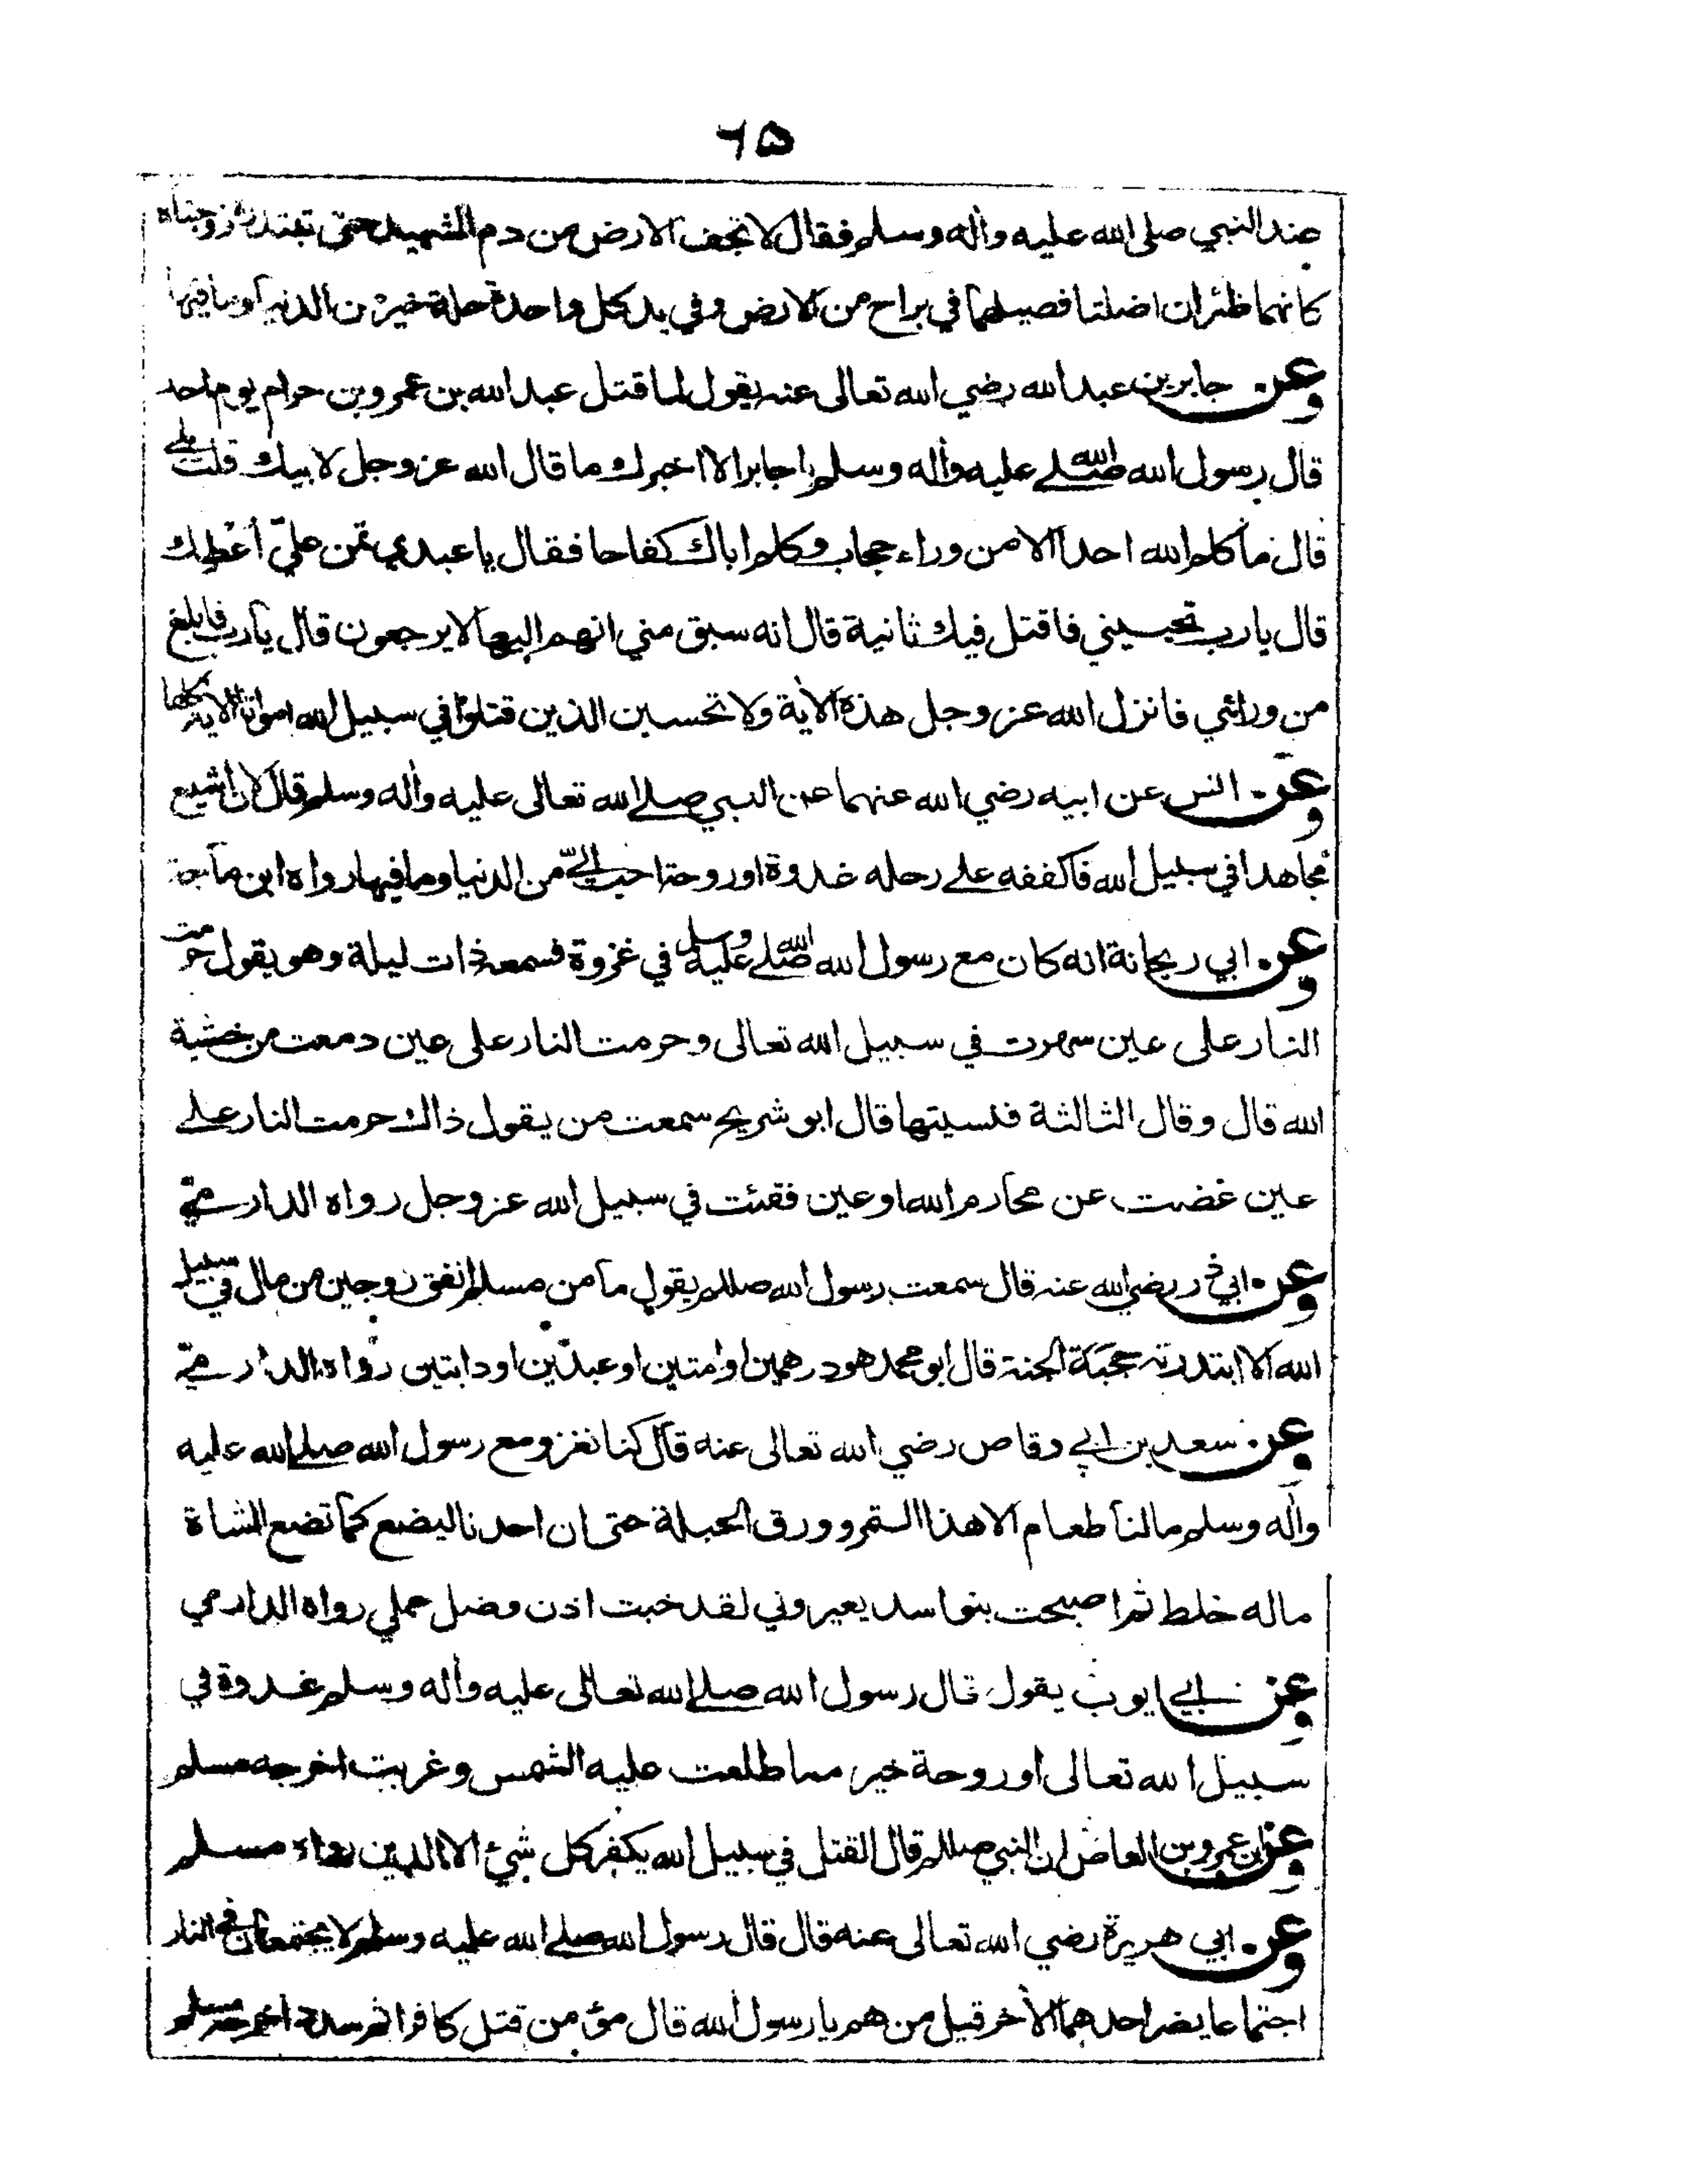 ٦٥
عند النبي صلى الله عليه وأله وسلم فقال لا تجف الارض من دم الشهيد حتى تبتدره زوجتاه
كانهما ظئران اضلتا فصيلهما في براح من الارض وفي يد كل واحدة حلة خير من الدنيا وما فيها
وعن جابر بن عبد الله رضي الله تعالى عنه يقول لما قتل عبد الله بن عمرو بن حرام يوم احد
قال رسول الله صلے الله عليه وأله وسلم يا جابر الا اخبرك ما قال الله عز وجل لابيك قلت بلے
قال ما كلم الله احدا الا من وراء حجاب وكلم اباك كفاحا فقال يا عبدي تمن عليّ أعطك
قال يا رب تحييني فاقتل فيك ثانية قال انه سبق مني انهم اليها لا يرجعون قال يا رب فابلغ
من ورائي فانزل الله عز وجل هذه الأية ولا تحسبن الذين قتلوا في سبيل الله امواتا الاية كلها
وعن انس عن ابيه رضي الله عنهما عن النبي صلے الله تعالى عليه وأله وسلم قال لان اشيع
مجاهدا في سبيل الله فاكففه علے رحله غدوة او روحة احب الیّ من الدنيا وما فيها رواه ابن ماجة
وعن ابي ريحانة انه كان مع رسول الله صلے الله عليه وسلم في غزوة فسمعه ذات ليلة وهو يقول حرمت
النار على عين سهرت في سبيل الله تعالى وحرمت النار على عين دمعت من خشية
الله قال وقال الثالثة فنسيتها قال ابو شريح سمعت من يقول ذاك حرمت النار علے
عين غضت عن محارم الله او عين فقئت في سبيل الله عز وجل رواه الدارمي
وعن ابي ذر رضي الله عنه قال سمعت رسول الله صللم يقول ما من مسلم انفق زوجين من مال في سبيل
الله الا ابتدرته حجبة الجنة قال ابو محمد هو درهمين او امتين او عبدين او دابتين رواه الدارمي
وعن سعد بن ابي وقاص رضي الله تعالى عنه قال كنا نغزو مع رسول الله صلے الله عليه
وأله وسلم ما لنا طعام الا هذا السمر وورق الحبلة حتى ان احدنا ليضع كما تضع الشاة
ماله خلط ثم اصبحت بنو اسد يعيروني لقد خبت اذن وضل عملي رواه الدارمي
وعن ابي ايوب يقول قال رسول الله صلے الله تعالى عليه وأله وسلم غدوة في
سبيل الله تعالى او روحة خير مما طلعت عليه الشمس وغربت اخرجه مسلم
وعن ابن عمرو بن العاص ان النبي صللم قال القتل في سبيل الله يكفر كل شيئ الا الدين رواه مسلم
وعن ابي هريرة رضي الله تعالى عنه قال قال رسول الله صلے الله عليه وسلم لا يجتمعان في النار
اجتماعا يضر احدهما الأخر قيل من هم يا رسول الله قال مؤمن قتل كافرا ثم سدد اخرجه مسلم